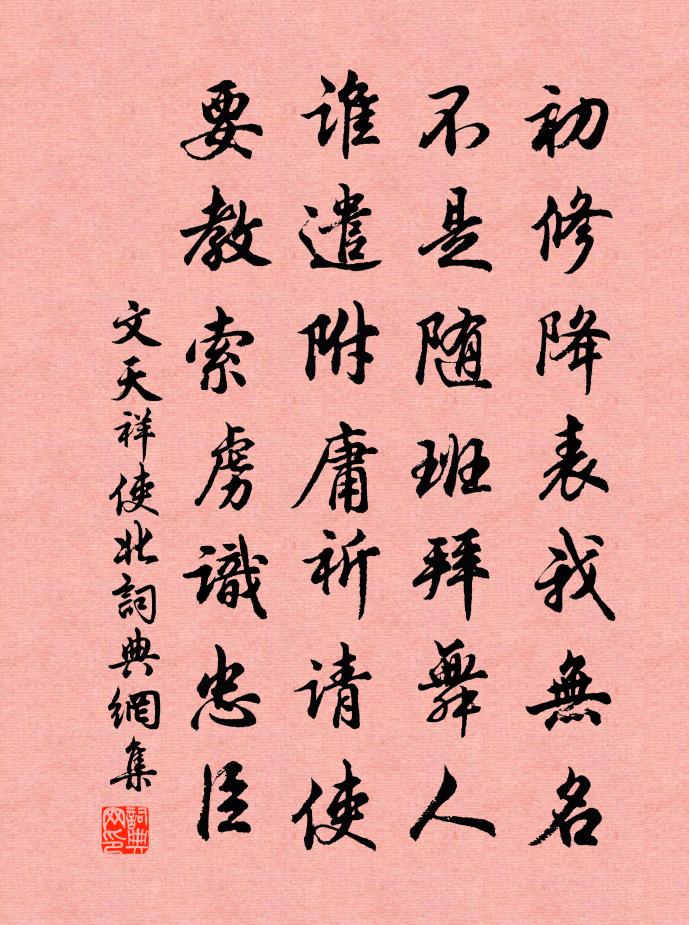 初修降表我無名
不是随班拜舞人
谁遣附庸祈请使
要教索虏識忠臣
文天祥使北詞典網集
詞典网印